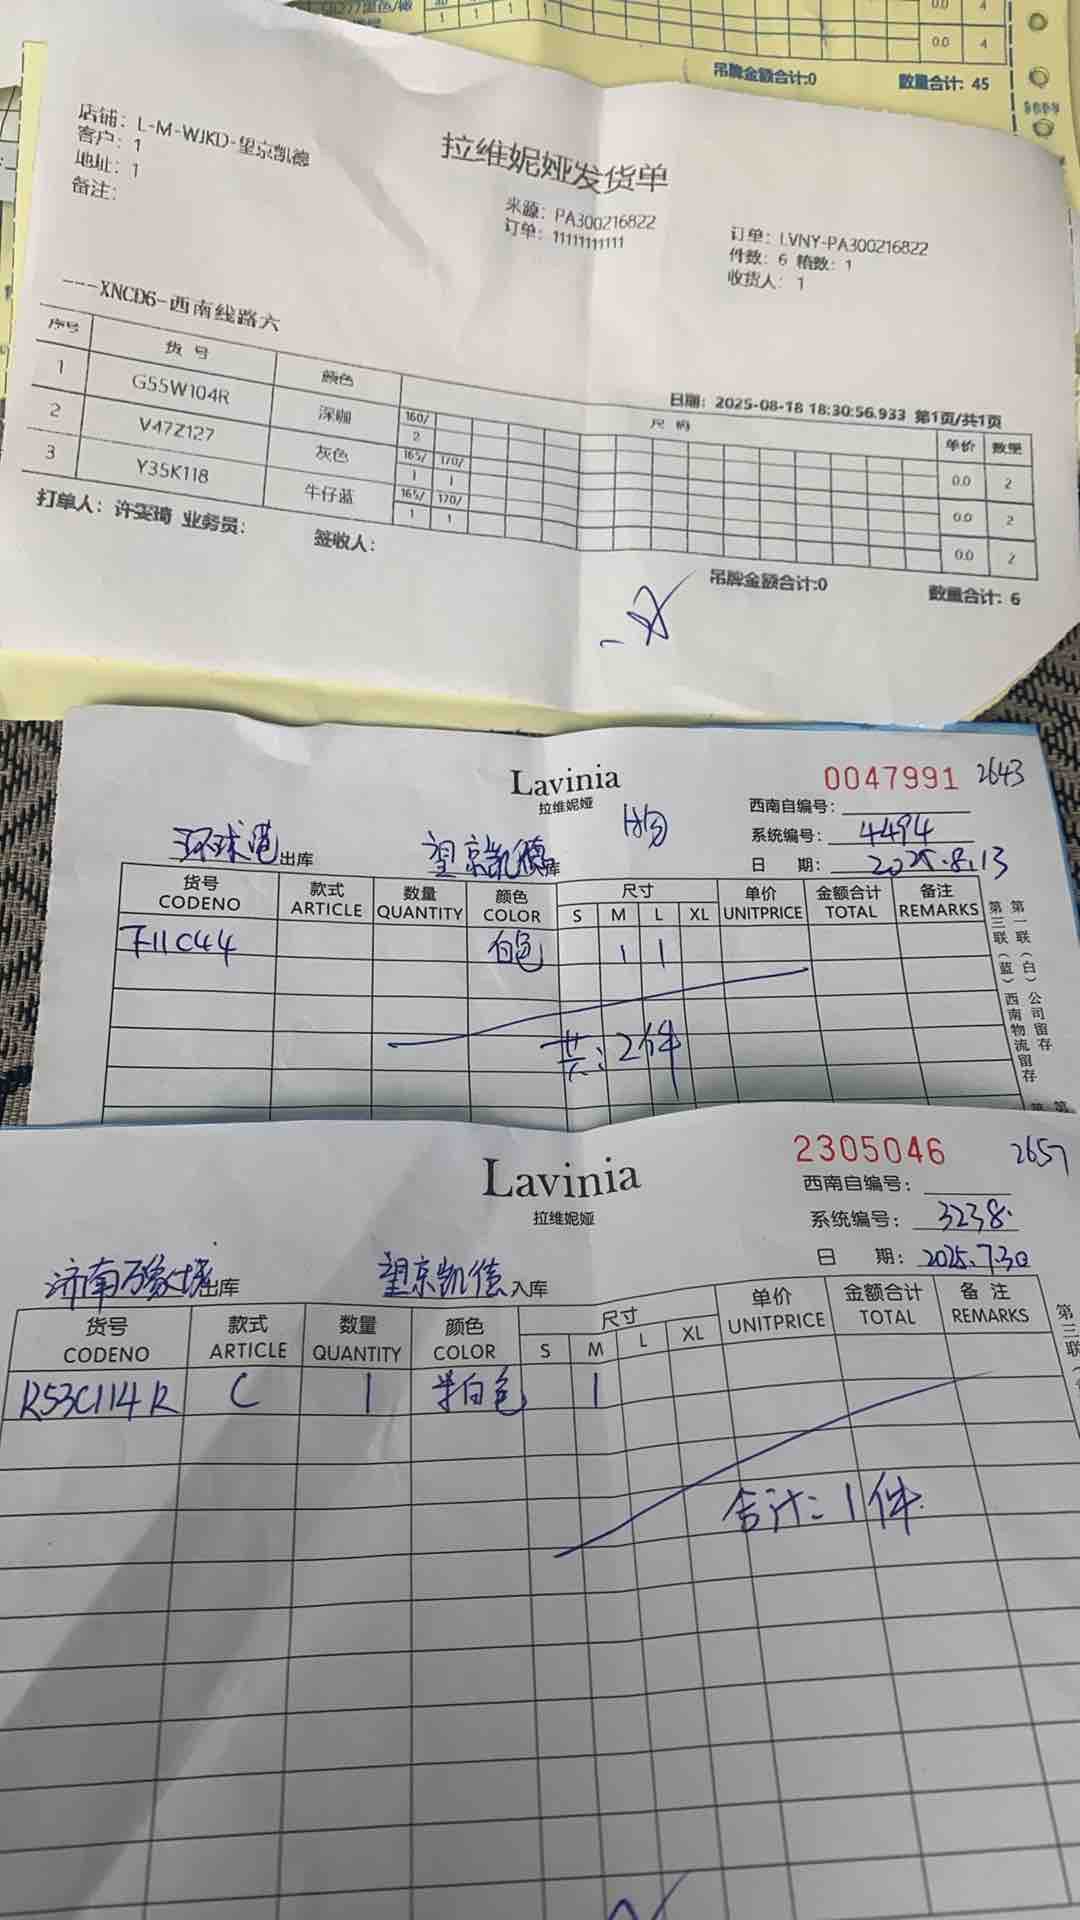 0.0 4
1 1 1 1
0.0 4
吊牌金额合计:0 数量合计: 45
店铺: L-M-WJKD-望京凯德
客户: 1
地址: 1
备注:
拉维妮娅发货单
来源: PA300216822
订单: 11111111111
订单: LVNY-PA300216822
件数: 6 箱数: 1
收货人: 1
---XNCD6-西南线路六
日期: 2025-08-18 18:30:56.933 第1页/共1页
序号 货号 颜色 尺码 单价 数量
1 G55W104R 深咖 160/ 2 0.0 2
2 V47Z127 灰色 165/ 170/ 1 1 0.0 2
3 Y35K118 牛仔蓝 165/ 170/ 1 1 0.0 2
打单人: 许雯琦 业务员: 签收人:
吊牌金额合计:0 数量合计: 6
Lavinia
拉维妮娅
0047991 2643
西南自编号:
系统编号: 4494
日 期: 2025.8.13
环球港出库 望京凯德库
货号 款式 数量 颜色 尺寸 单价 金额合计 备注
CODENO ARTICLE QUANTITY COLOR S M L XL UNITPRICE TOTAL REMARKS
F11C44 白色 1 1
共: 2件
第一联(白)公司留存
第三联(蓝)西南物流留存
Lavinia
拉维妮娅
2305046 2657
西南自编号:
系统编号: 3238
日 期: 2025.7.30
济南万象城出库 望京凯德入库
货号 款式 数量 颜色 尺寸 单价 金额合计 备注
CODENO ARTICLE QUANTITY COLOR S M L XL UNITPRICE TOTAL REMARKS
R53C114R C 1 米白色 1
合计: 1件
第三联